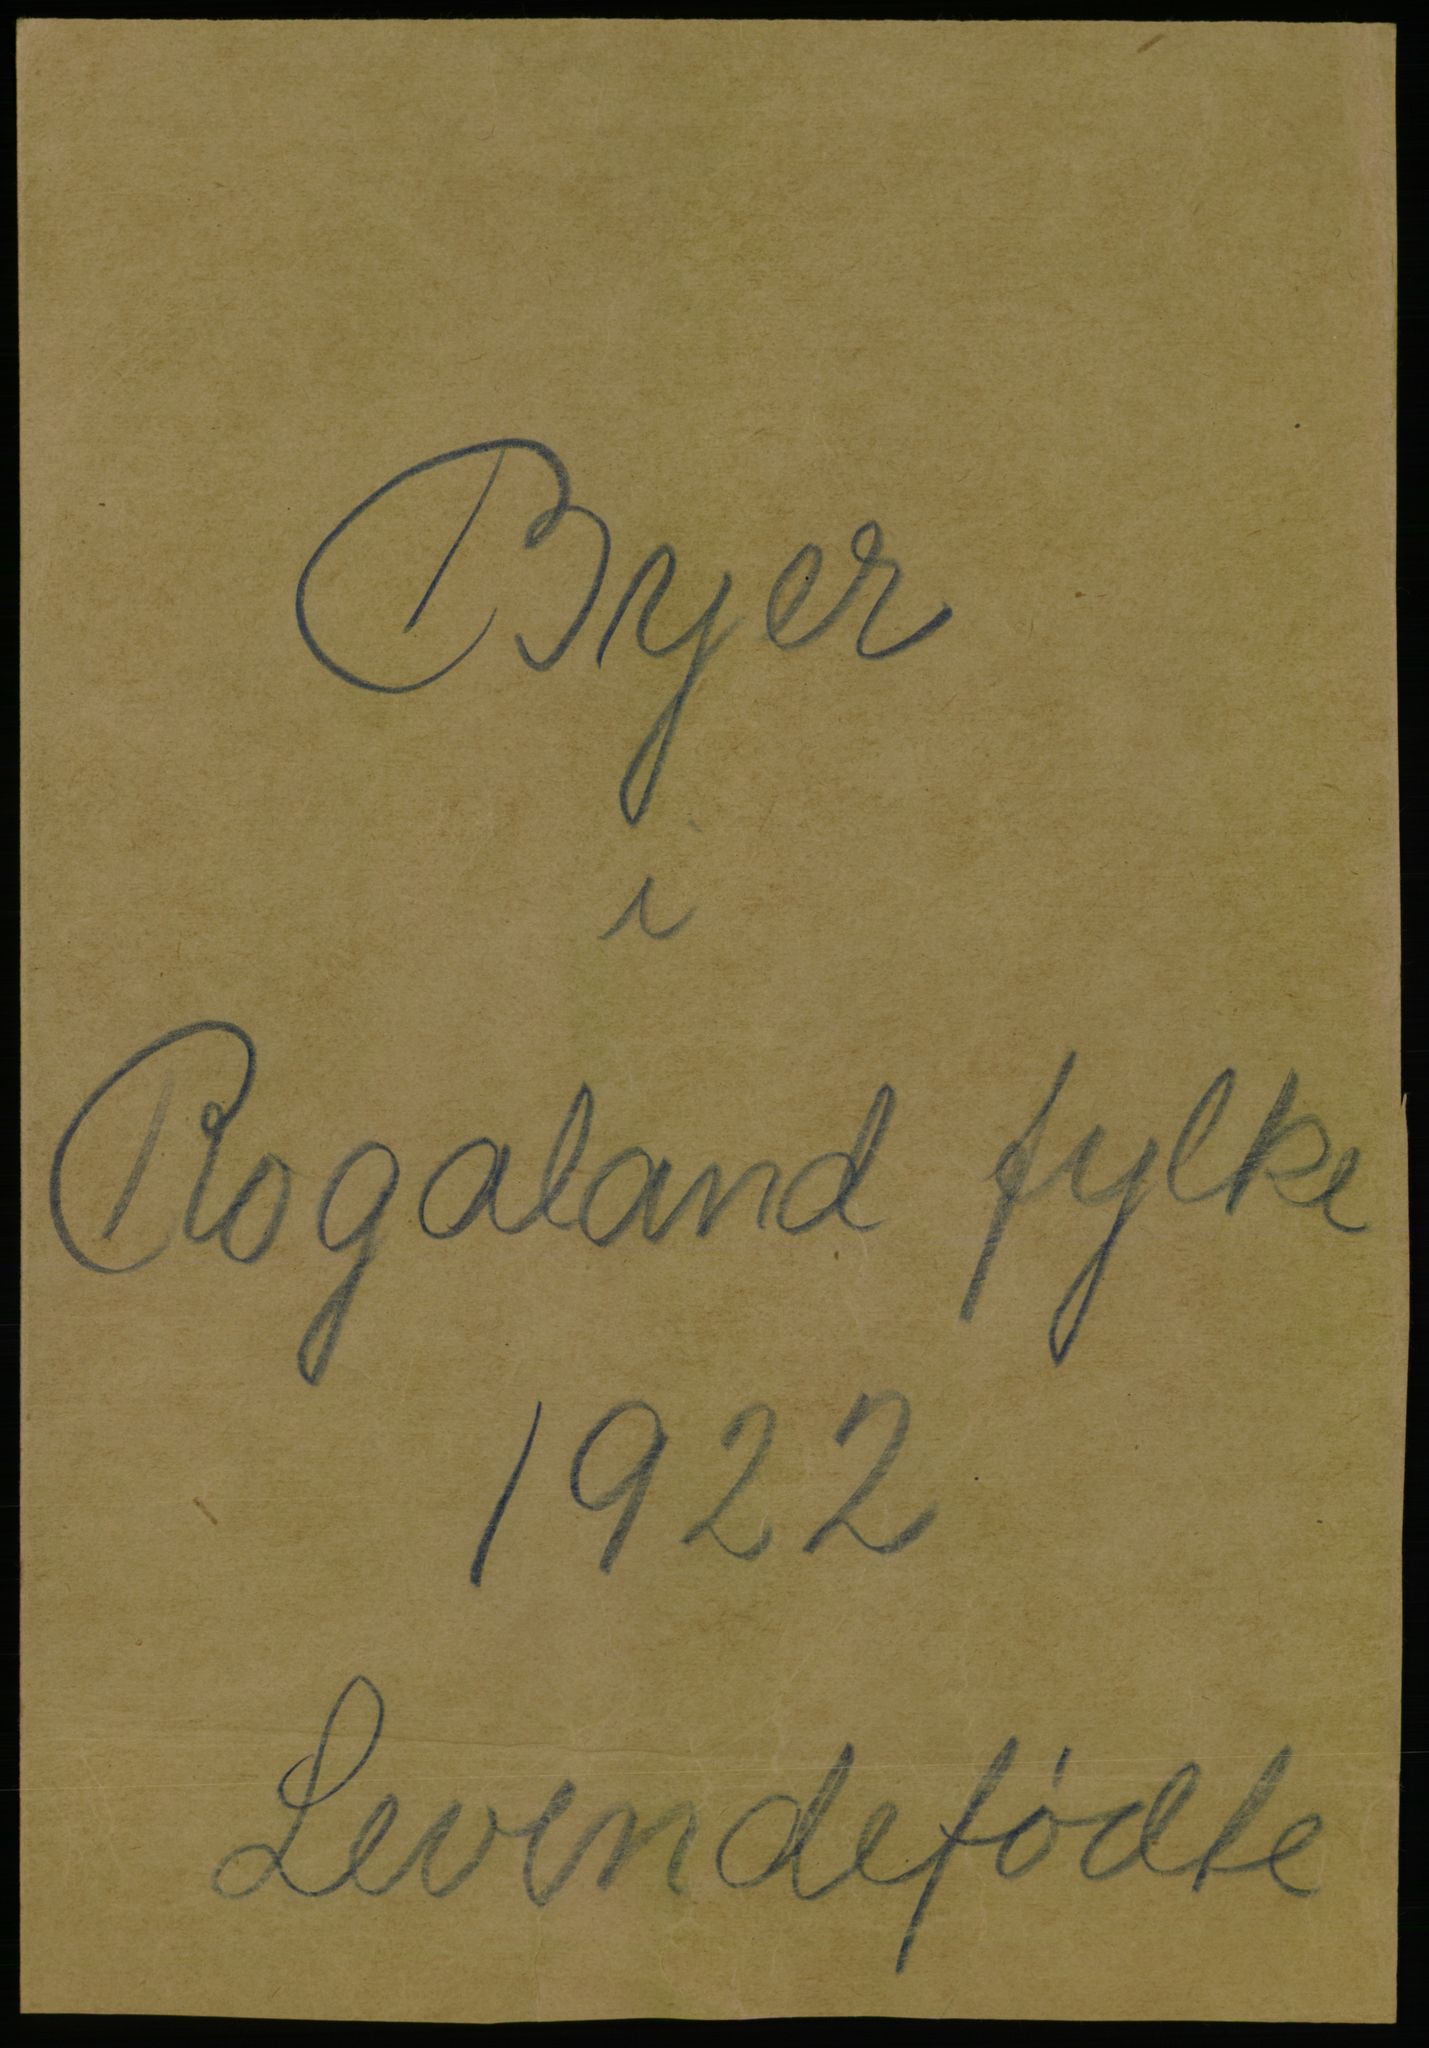 Byer
i
Rogaland fylke
1922
Levendefödte